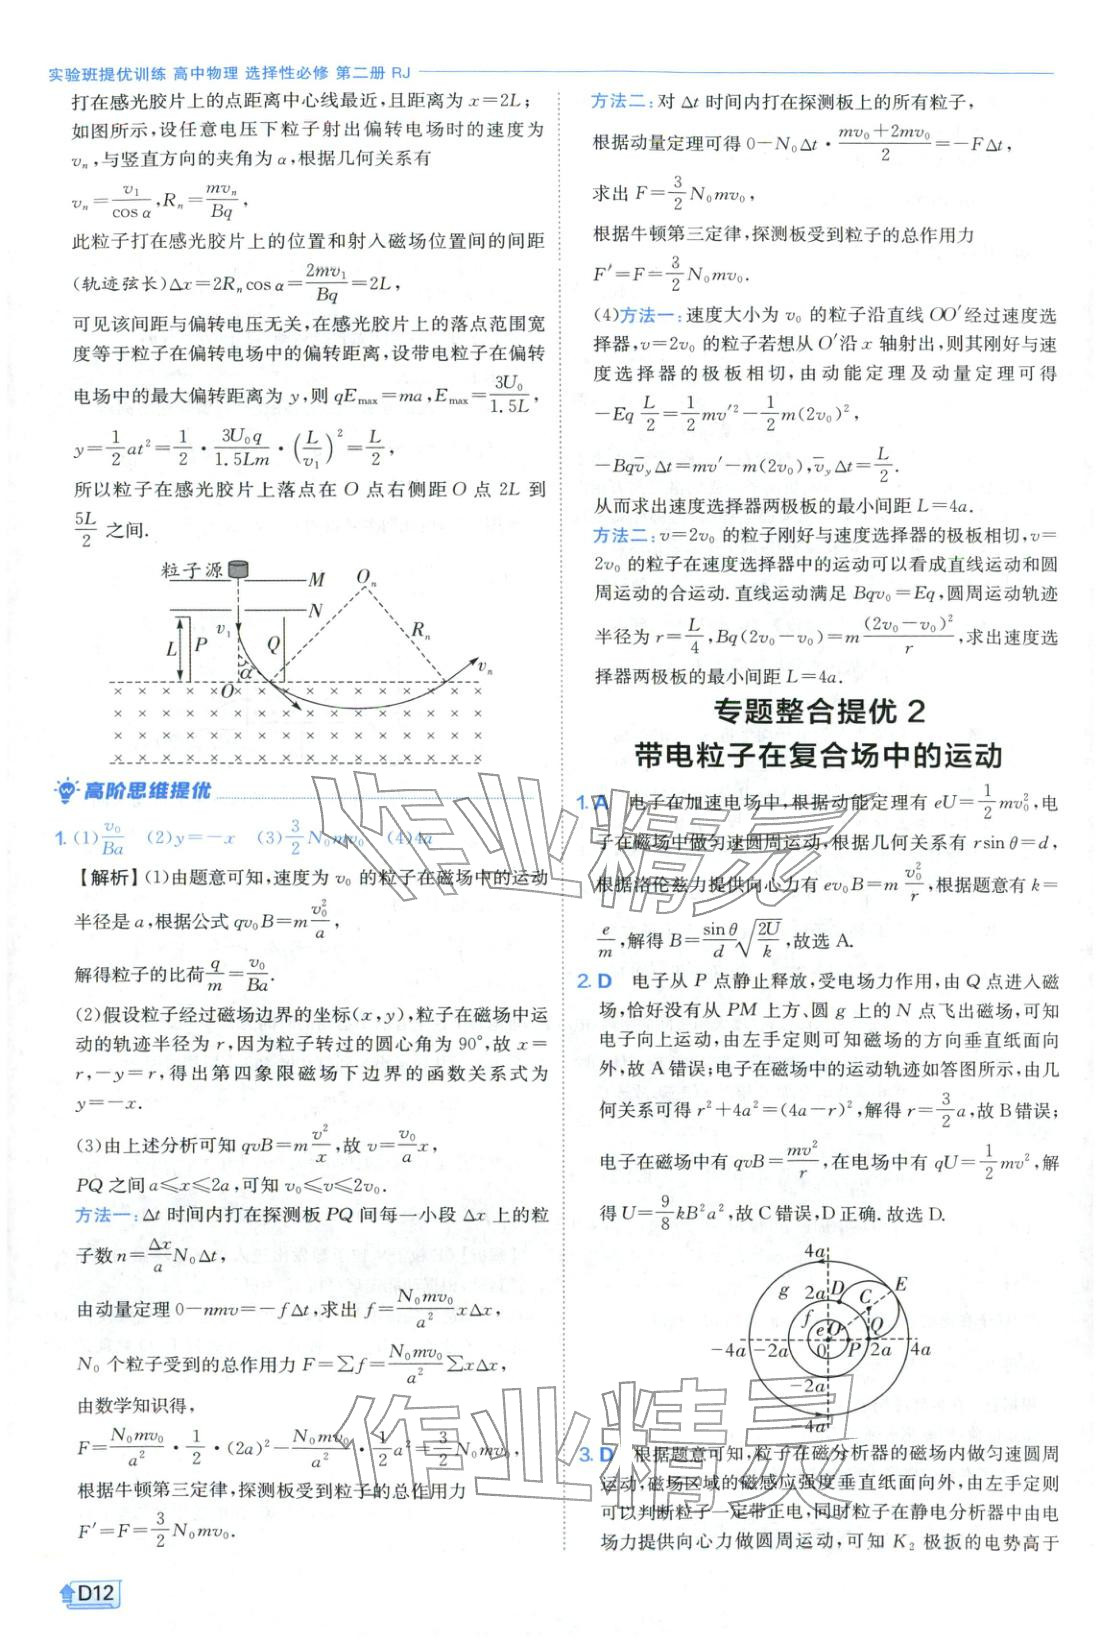 实验班提优训练 高中物理 选择性必修 第二册 RJ
打在感光胶片上的点距离中心线最近,且距离为 x=2L;
如图所示,设任意电压下粒子射出偏转电场时的速度为
vₙ,与竖直方向的夹角为 α,根据几何关系有
vₙ=v₁/cos α,Rₙ=mvₙ/Bq,
此粒子打在感光胶片上的位置和射入磁场位置间的间距
(轨迹弦长)Δx=2Rₙcos α=2mv₁/Bq=2L,
可见该间距与偏转电压无关,在感光胶片上的落点范围宽
度等于粒子在偏转电场中的偏转距离,设带电粒子在偏转
电场中的最大偏转距离为 y,则 qEmax=ma,Emax=3U₀/1.5L,
y=1/2 at²=1/2·3U₀q/1.5Lm·(L/v₁)²=L/2,
所以粒子在感光胶片上落点在 O 点右侧距 O 点 2L 到
5L/2 之间.
粒子源
M
Oₙ
N
v₁
Rₙ
L
P
Q
α
vₙ
O
高阶思维提优
1. (1)v₀/Ba (2)y=-x (3)3/2 N₀mv₀ (4)4a
【解析】(1)由题意可知,速度为 v₀ 的粒子在磁场中的运动
半径是 a,根据公式 qv₀B=m v₀²/a,
解得粒子的比荷 q/m=v₀/Ba.
(2)假设粒子经过磁场边界的坐标(x,y),粒子在磁场中运
动的轨迹半径为 r,因为粒子转过的圆心角为 90°,故 x=
r,-y=r,得出第四象限磁场下边界的函数关系式为
y=-x.
(3)由上述分析可知 qvB=m v²/x,故 v=v₀/a x,
PQ 之间 a≤x≤2a,可知 v₀≤v≤2v₀.
方法一:Δt 时间内打在探测板 PQ 间每一小段 Δx 上的粒
子数 n=Δx/a N₀Δt,
由动量定理 0-nmv=-fΔt,求出 f=N₀mv₀/a² xΔx,
N₀ 个粒子受到的总作用力 F=∑f=N₀mv₀/a² ∑xΔx,
由数学知识得,
F=N₀mv₀/a²·1/2·(2a)²-N₀mv₀/a²·1/2 a²=3/2 N₀mv₀,
根据牛顿第三定律,探测板受到粒子的总作用力
F′=F=3/2 N₀mv₀.
D12
方法二:对 Δt 时间内打在探测板上的所有粒子,
根据动量定理可得 0-N₀Δt·(mv₀+2mv₀)/2=-FΔt,
求出 F=3/2 N₀mv₀,
根据牛顿第三定律,探测板受到粒子的总作用力
F′=F=3/2 N₀mv₀.
(4)方法一:速度大小为 v₀ 的粒子沿直线 OO′经过速度选
择器,v=2v₀ 的粒子若想从 O′沿 x 轴射出,则其刚好与速
度选择器的极板相切,由动能定理及动量定理可得
-Eq L/2=1/2 mv′²-1/2 m(2v₀)²,
-Bqv̄yΔt=mv′-m(2v₀),v̄yΔt=L/2.
从而求出速度选择器两极板的最小间距 L=4a.
方法二:v=2v₀ 的粒子刚好与速度选择器的极板相切,v=
2v₀ 的粒子在速度选择器中的运动可以看成直线运动和圆
周运动的合运动.直线运动满足 Bqv₀=Eq,圆周运动轨迹
半径为 r=L/4,Bq(2v₀-v₀)=m (2v₀-v₀)²/r,求出速度选
择器两极板的最小间距 L=4a.
专题整合提优 2
带电粒子在复合场中的运动
1. A 电子在加速电场中,根据动能定理有 eU=1/2 mv₀²,电
子在磁场中做匀速圆周运动,根据几何关系有 rsin θ=d,
根据洛伦兹力提供向心力有 ev₀B=m v₀²/r,根据题意有 k=
e/m,解得 B=sin θ/d √(2U/k),故选 A.
2. D 电子从 P 点静止释放,受电场力作用,由 Q 点进入磁
场,恰好没有从 PM 上方、圆 g 上的 N 点飞出磁场,可知
电子向上运动,由左手定则可知磁场的方向垂直纸面向
外,故 A 错误;电子在磁场中的运动轨迹如答图所示,由几
何关系可得 r²+4a²=(4a-r)²,解得 r=3/2 a,故 B 错误;
电子在磁场中有 qvB=mv²/r,在电场中有 qU=1/2 mv²,解
得 U=9/8 kB²a²,故 C 错误,D 正确.故选 D.
4a
g
2a
D
E
C
f
e
O
Q
-4a
-2a
0
P
2a
4a
-2a
-4a
3. D 根据题意可知,粒子在磁分析器的磁场内做匀速圆周
运动,磁场区域的磁感应强度垂直纸面向外,由左手定则
可以判断粒子一定带正电,同时粒子在静电分析器中由电
场力提供向心力做圆周运动,可知 K₂ 极板的电势高于
作业精灵
作业精灵